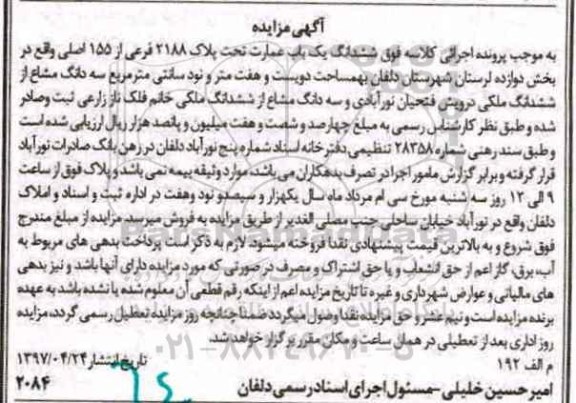 آگهی مزایده
به موجب پرونده اجرائی کلاسه فوق ششدانگ یک باب عمارت تحت پلاک ۲۱۸۸ فرعی از ۱۵۵ اصلی واقع در
بخش دوازده لرستان شهرستان دلفان بهمساحت دویست و هفت متر و نود سانتی مترمربع سه دانگ مشاع از
ششدانگ ملکی درویش فتحیان نورآبادی و سه دانگ مشاع از ششدانگ ملکی خانم فلک ناز زارعی ثبت وصادر
شده و طبق نظر کارشناس رسمی به مبلغ چهارصد و شصت و هفت میلیون و پانصد هزار ریال ارزیابی شده است
و طبق سند رهنی شماره ۲۸۳۵۸ تنظیمی دفترخانه اسناد شماره پنج نورآباد دلفان در رهن بانک صادرات نورآباد
قرار گرفته و برابر گزارش مامور اجرا در تصرف بدهکاران می باشد، موارد وثیقه بیمه نمی باشد و پلاک فوق از ساعت
۹ الی ۱۲ روز سه شنبه مورخ سی ام مرداد ماه سال یکهزار و سیصدو نود وهفت در اداره ثبت و اسناد و املاک
دلفان واقع در نورآباد خیابان ساحلی جنب مصلی الغدیر از طریق مزایده به فروش میرسد مزایده از مبلغ مندرج
فوق شروع و به بالاترین قیمت پیشنهادی نقدا فروخته میشود، لازم به ذکر است پرداخت بدهی های مربوط به
آب، برق، گاز اعم از حق انشعاب و یا حق اشتراک و مصرف در صورتی که مورد مزایده دارای آنها باشد و نیز بدهی
های مالیاتی و عوارض شهرداری و غیره تا تاریخ مزایده اعم از اینکه رقم قطعی آن معلوم شده یا نشده باشد به عهده
برنده مزایده است و نیم عشر و حق مزایده نقدا وصول میگردد ضمنا چنانچه روز مزایده تعطیل رسمی گردد، مزایده
روز اداری بعد از تعطیلی در همان ساعت و مکان مقرر برگزار خواهد شد.
تاریخ انتشار ۱۳۹۷/۰۴/۲۴
م الف ۱۹۲
امیر حسین خلیلی-مسئول اجرای اسناد رسمی دلفان
۲۰۸۴